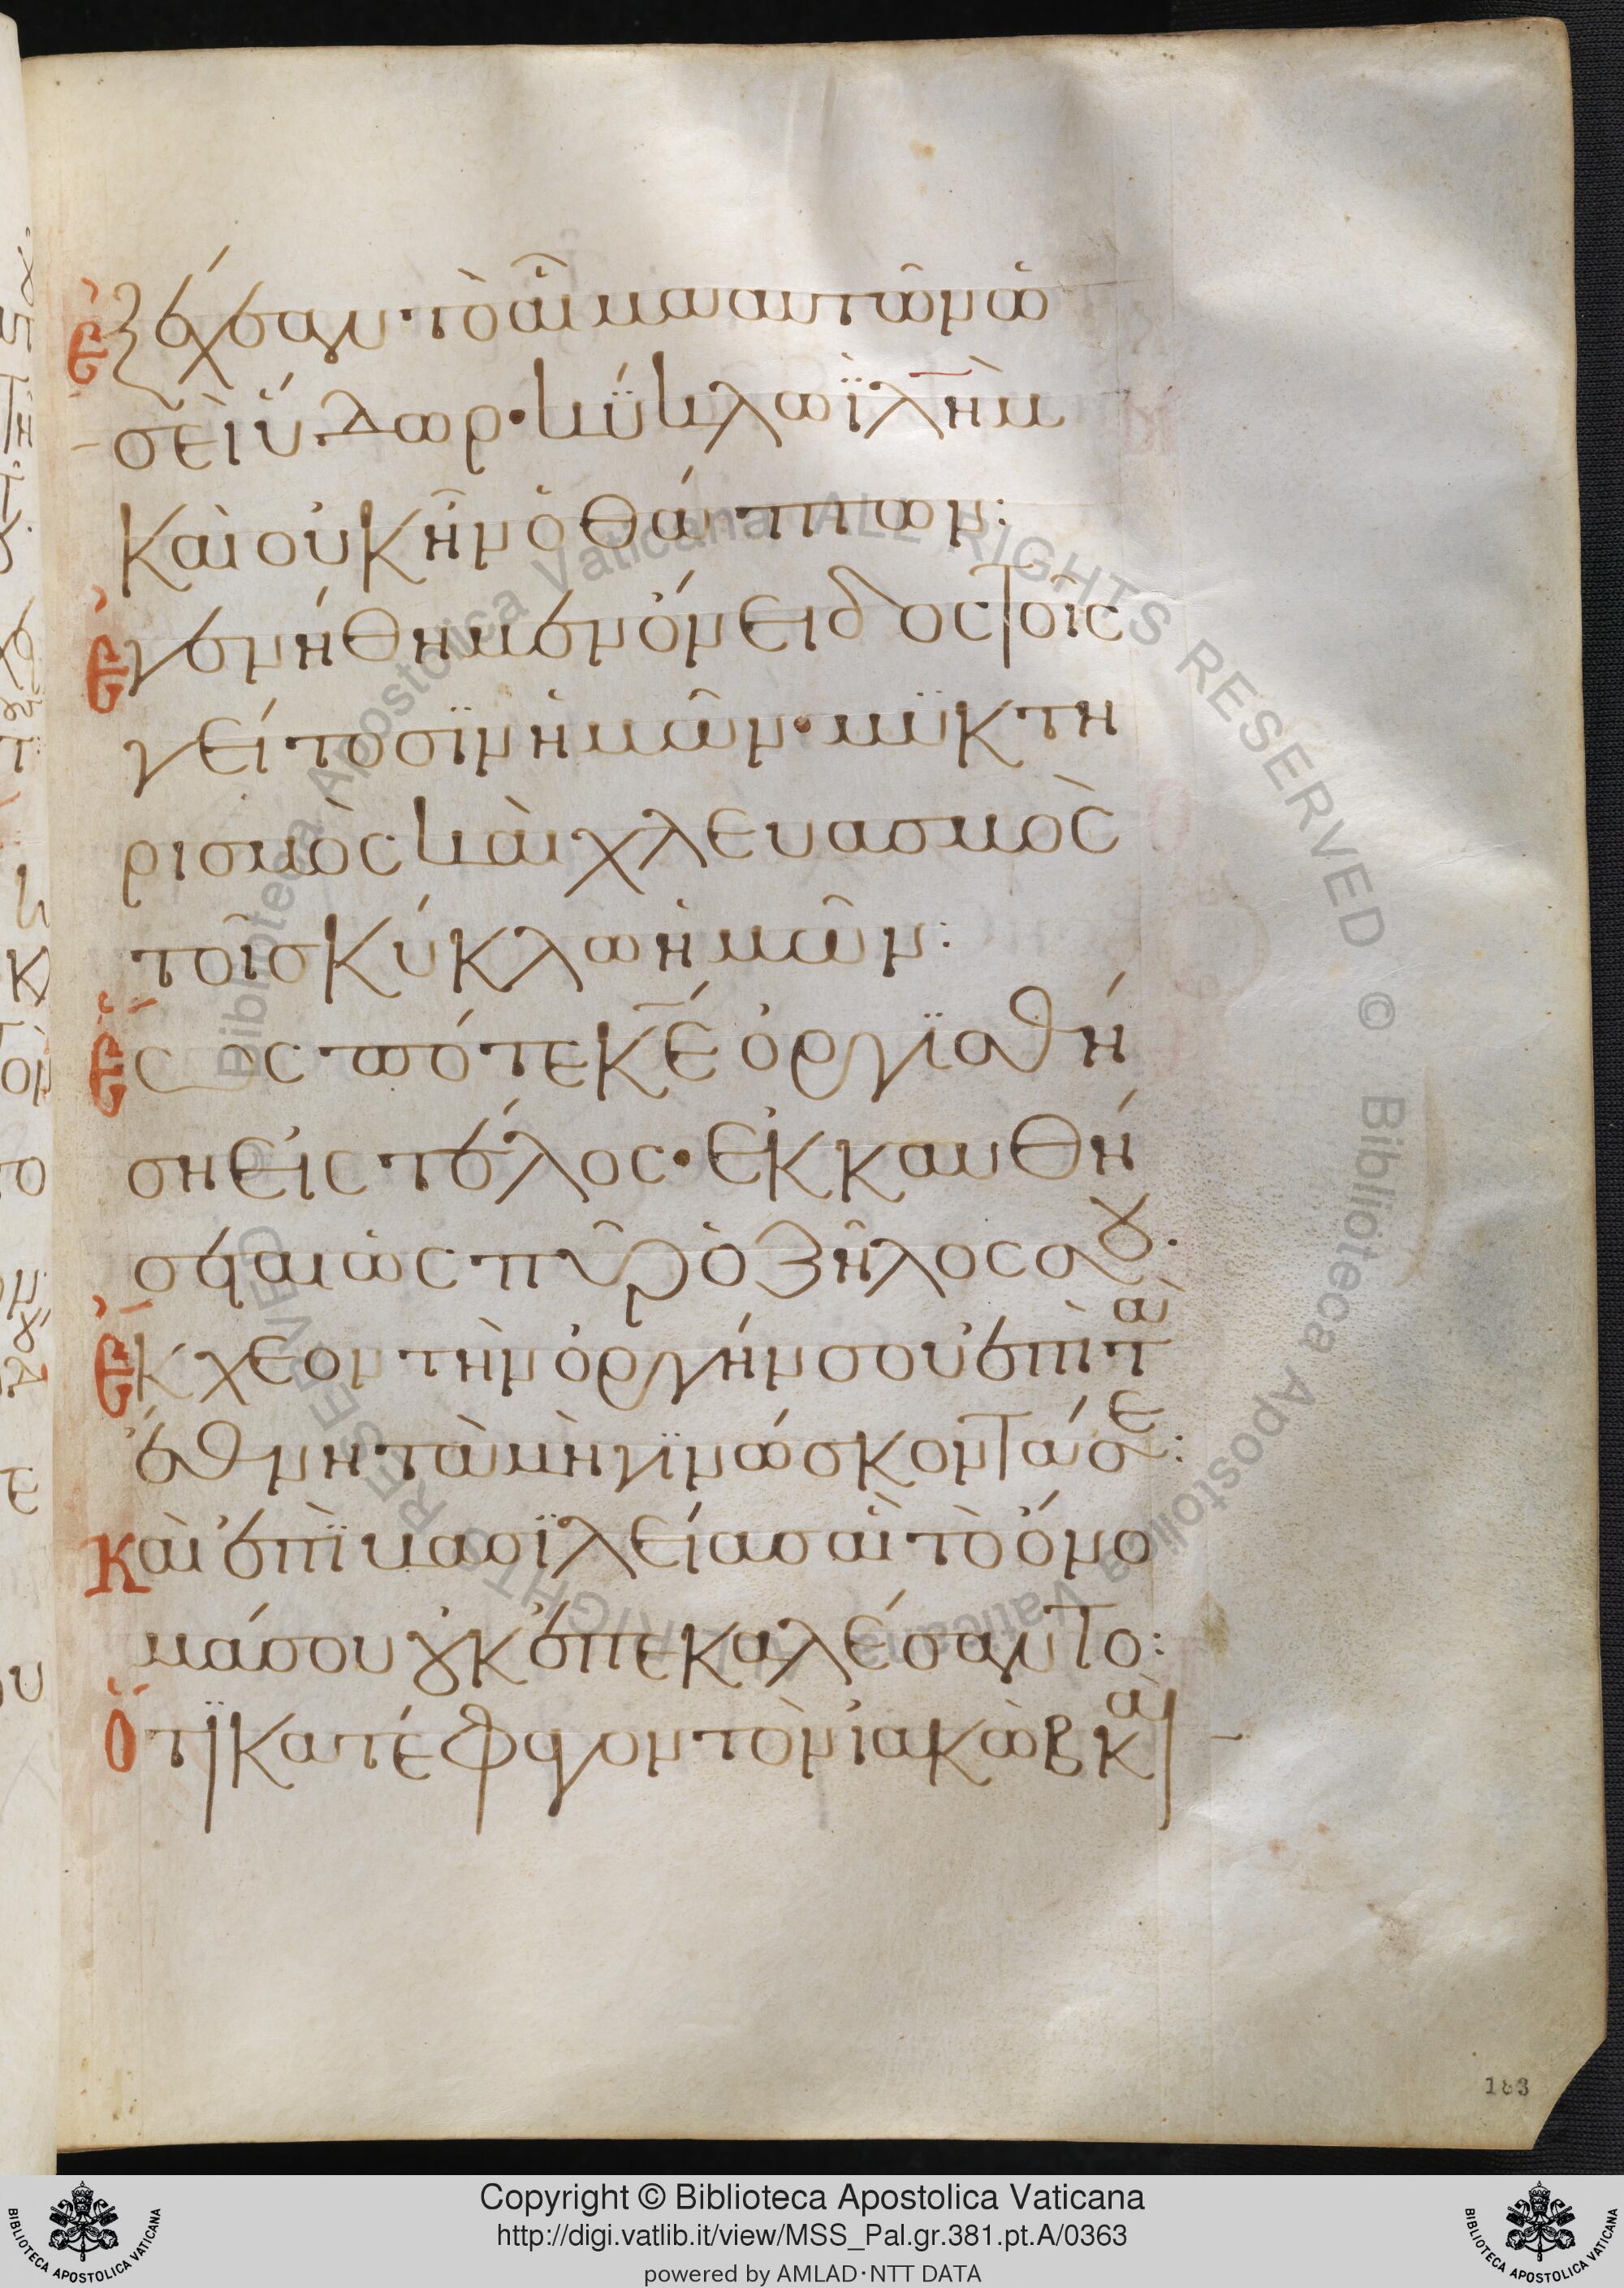 Ἐξέχεαν τὸ αἷμα αυτῶν ὡ
σεὶ ὕδωρ· κύκλω ϊλὴμ
Καὶ οὐκ ἦν ὁ θάπτων:
Ἐγενήθημεν ὄνειδος τοῖς
γείτοσϊν ἡμῶν· μϋκτη
ρισμὸς καὶ χλευασμὸς
τοῖσ κύκλω ἡμῶν:
Ἕως πότε κ̅ε̅ ὀργϊσθή
ση εἰς τέλος· ἐκκαυθή
σεται ὡς πῦρ ὁ ζῆλος σου:
Ἔκχεον τὴν ὀργήν σου ἐπὶ τὰ
ἔθνη τὰ μὴ γϊνώσκοντά σε:
Καὶ ἐπϊ βασϊλείασ αἳ τὸ ὄνο
μά σου οὐκ ἐπεκαλέσαντο:
Ὅτϊ κατέφαγον τὸν ἰακὼβ καὶ
183
Copyright © Biblioteca Apostolica Vaticana
http://digi.vatlib.it/view/MSS_Pal.gr.381.pt.A/0363
powered by AMLAD·NTT DATA
BIBLIOTECA APOSTOLICA VATICANA
BIBLIOTECA APOSTOLICA VATICANA
Biblioteca Apostolica Vaticana ALL RIGHTS RESERVED © Biblioteca Apostolica Vaticana ALL RIGHTS RESERVED ©